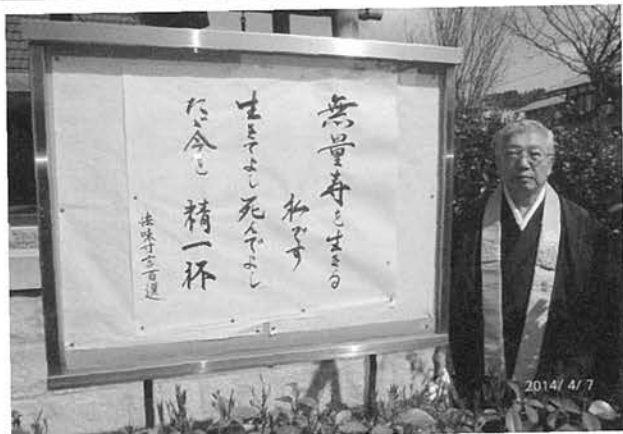 無量寿を生きる
私です
生きてよし死んでよし
たゞ今を 精一杯
法味寸言百選
2014/ 4/ 7